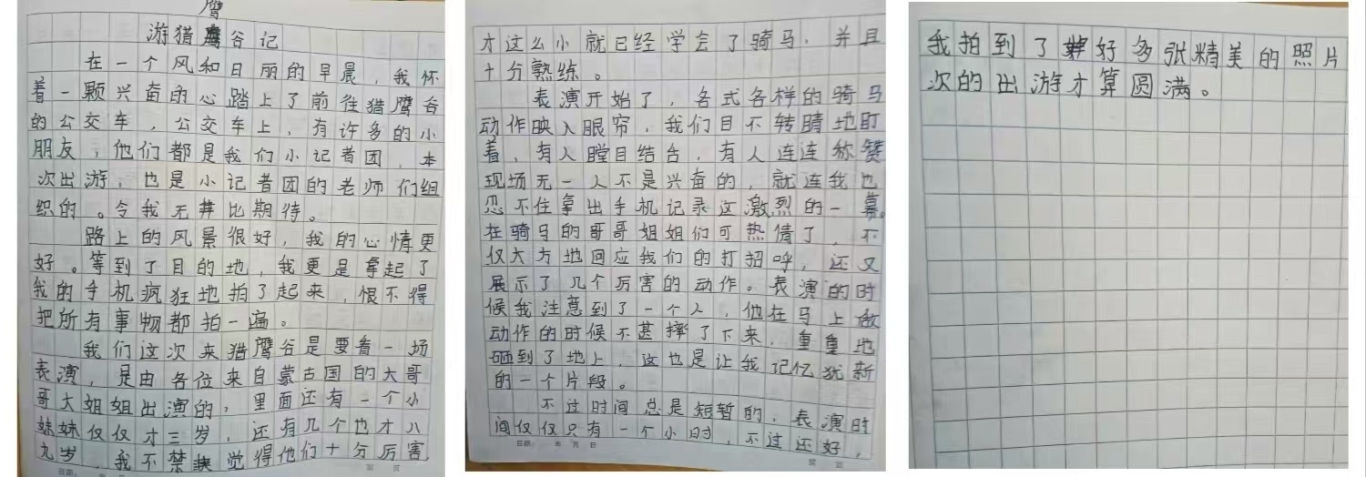 鹰
游猎鹰谷记
在一个风和日丽的早晨，我怀
着一颗兴奋的心踏上了前往猎鹰谷
的公交车，公交车上，有许多的小
朋友，他们都是我们小记者团，本
次出游，也是小记者团的老师们组
织的。令我无比期待。
路上的风景很好，我的心情更
好。等到了目的地，我更是拿起了
我的手机疯狂地拍了起来，恨不得
把所有事物都拍一遍。
我们这次来猎鹰谷是要看一场
表演，是由各位来自蒙古国的大哥
哥大姐姐出演的，里面还有一个小
妹妹仅仅才三岁，还有几个也才八
九岁，我不禁觉得他们十分厉害，
才这么小就已经学会了骑马，并且
十分熟练。
表演开始了，各式各样的骑马
动作映入眼帘，我们目不转睛地盯
着，有人瞠目结舌，有人连连称赞
现场无一人不是兴奋的，就连我也
忍不住拿出手机记录这激烈的一幕。
在骑马的哥哥姐姐们可热情了，不
仅大方地回应我们的打招呼，还又
展示了几个厉害的动作。表演的时
候我注意到了一个人，他在马上做
动作的时候不甚摔了下来，重重地
砸到了地上，这也是让我记忆犹新
的一个片段。
不过时间总是短暂的，表演时
间仅仅只有一个小时，不过还好，
日期： 年 月 日
我拍到了好多张精美的照片
次的出游才算圆满。